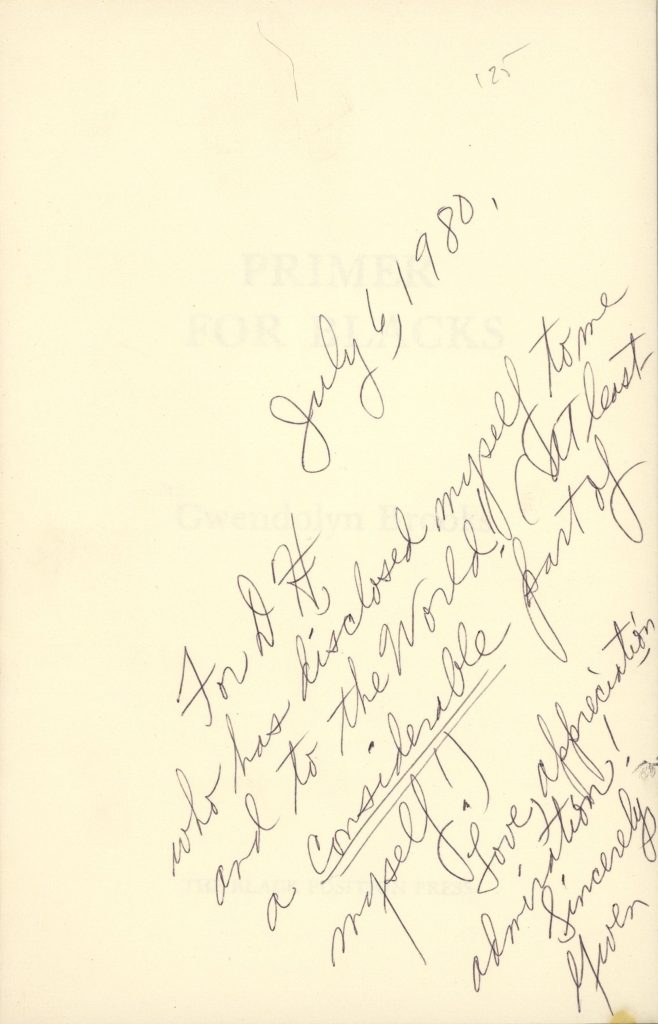 125
July 6, 1980.
PRIMER
FOR BLACKS
Gwendolyn Brooks
For D H,
who has disclosed myself to me
and to the World!! (At least
a considerable part of
myself!!)
Love, appreciation
admiration!
Sincerely
Gwen
THE BLACK POSITION PRESS